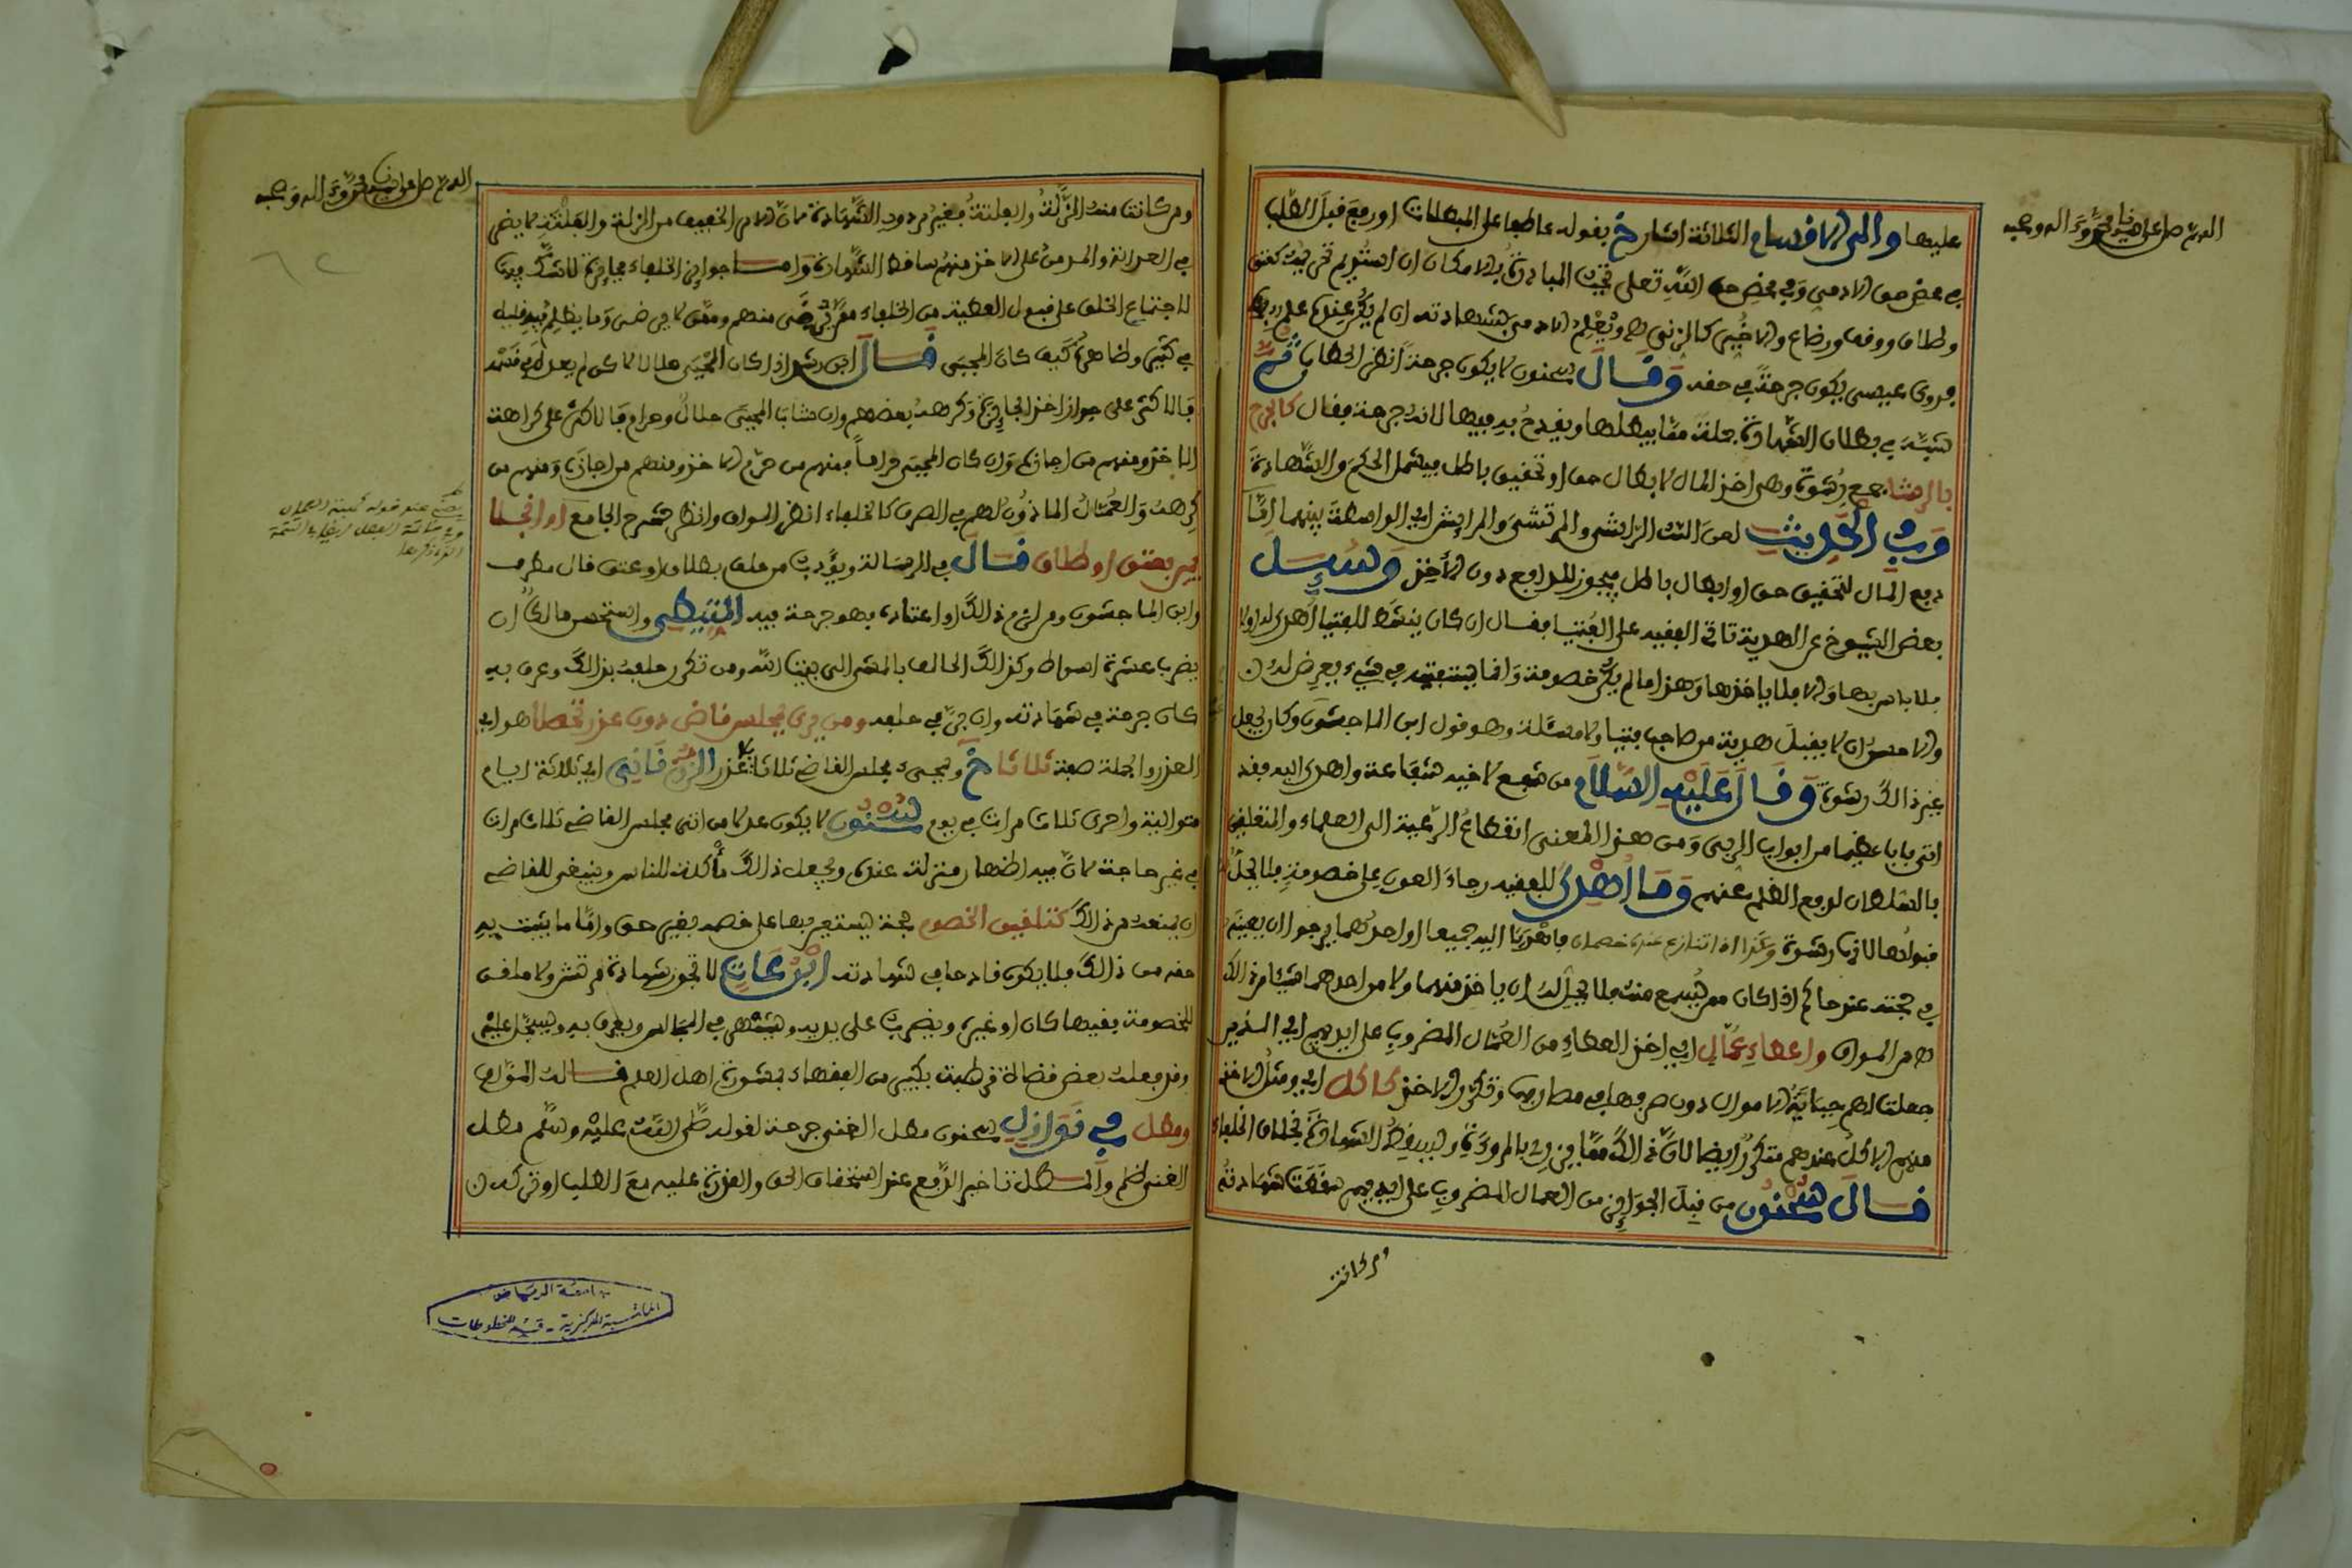 اللهم صل على سيدنا محمد وءاله وصحبه
عليها والى الاقسام الثلاثة اشار خ بقوله عاطفا على المبطلات او رفع قبل الطلب
في محض حق الادمي وفي محض حق الله تعلى تجب المبادرة بالامكان ان استديم تحريمه كعتق
وطلاق ووقف ورضاع والا خير كالزنى
فروى عيسى يكون جرحة في حقه وقال سحنون لا يكون جرحة انظر الحطاب ثم
شبه في بطلان الشهادة جملة مما يبطلها ويقدح به فيها لانه جرحة فقال كالرج
بالرشا جمع رشوة وهي اخذ المال لابطال حق او تحقيق باطل فيشمل الحكم والشهادة
وفي الحديث لعن الله الراشي والمرتشي والرايش اي الواسطة بينهما اما
دفع المال لتحقيق حق او ابطال باطل فيجوز للدافع دون الاخذ وسئل
بعض الشيوخ عن الهدية تاتي الفقيه على الفتيا فقال ان كان ينشط للفتيا اهدي له او لا
فلا باس بها والا فلا ياخذها وهذا ما لم يكن خصومة وانما يستفتيه في شيء يعرض له
والاحسن ان لا يقبل هدية من صاحب فتيا ولا مسئلة وهو قول ابن الماجشون وكان يجعل
غير ذالك رشوة وقال عليه السلام من شفع لاخيه شفاعة واهدى اليه فقد
اتى بابا عظيما من ابواب الربى ومن هذا المعنى انقطاع الرعية الى العلماء والمتعلقين
بالسلطان لدفع الظلم عنهم وما اهدي للفقيه رجاء العون على خصومة فلا يحل
قبولها لانها رشوة وكذا اذا تنازع عنده خصمان فاهديا اليه جميعا او احدهما يرجو ان يعينه
في حجته عند حاكم اذا كان ممن يسمع منه فلا يحل له ان ياخذ منهما ولا من احدهما شيئا من ذالك
من المواق واعطاء عمال اي اخذ العطاء من العمال المضروب على ايديهم اي الذين
جعلت لهم جباية الاموال دون صرفها في مصارفها وتكرر الاخذ كاكل اي ومثل الاخذ
منهم الاكل عندهم متكررا ايضا لان ذالك مما يزري بالمروءة ويسقط الشهادة بخلاف الخلفاء
قال سحنون من قبل الجوايز من العمال المضروب على ايديهم سقطت شهادته
ومن كانت
اللهم صل على سيدنا محمد وءاله وصحبه
ومن كانت منه الزلة والفلتة فغير مردود الشهادة لان الامر الخفيف من الزلة والفلتة لا يضر
في العدالة والمدمن على الاخذ منهم ساقط الشهادة واما جوايز الخلفاء فجايزة لا شك فيه
لاجتماع الخلق على قبول العطية من الخلفاء ممن يرضى منهم وممن لا يرضى وما يظلم فيه قليل
في كثير وظاهره كيف كان المجبى قال ابن رشد اذا كان المجبى حلالا لكن لم يعدل في قسمه
فالاكثر على جواز اخذ الجايزة وكرهه بعضهم وان شاب المجبى حلال وحرام فالاكثر على كراهة
الاخذ ومنهم من اجازه وان كان المجبى حراما فمنهم من حرم الاخذ ومنهم من اجازه ومنهم من
كرهه والعمال الماذون لهم في الصرف كالخلفاء انظر المواق وانظر شرح الجامع او انحلا
فيه بعتق او طلاق قال في الرسالة ويؤدب من حلف بطلاق او عتق قال مطرف
وابن الماجشون ومن لزم ذالك او اعتاده فهو جرحة فيه المتيطي واستحسن مالك ان
يضرب عشرة اسواط وكذالك الحالف بالمشي الى بيت الله ومن تكرر حلفه بذالك وعرف به
كان جرحة في شهادته وان بر في حلفه ومن يرى بمجلس قاض دون عذر تحطا هو اي
العذر والجملة صفة ثلاثا خ ومجيء مجلس القاضي ثلاثا بلا عذر الزرقاني اي ثلاثة ايام
متوالية واحرى ثلاث مرات في يوم سحنون لا يكون عدلا من اتى مجلس القاضي ثلاث مرات
في غير حاجة لان فيه اظهار منزلة عنده ويجعل ذالك ماكلة للناس وينبغي للقاضي
ان يمنعه من ذالك كتلقين الخصوم حجة يستعين بها على خصمه بغير حق واما ما يثبت به
حقه من ذالك فلا يكون قادحا في شهادته ابن عات لا تجوز شهادة ملقن
للخصومة فقيها كان او غيره ويضرب على يديه ويشهر في المجالس ويعرف به ويسجل عليه
وقد فعله بعض قضاة قرطبة بكبير من الفقهاء بمشورة اهل العلم قاله المواق
ومطل وفي نوازل سحنون مطل الغني جرحة لقوله صلى الله عليه وسلم مطل
الغني ظلم والمطل تاخير الدفع عند استحقاق الحق والقدرة عليه مع الطلب او
جامعة الرياض
المكتبة المركزية - قسم المخطوطات